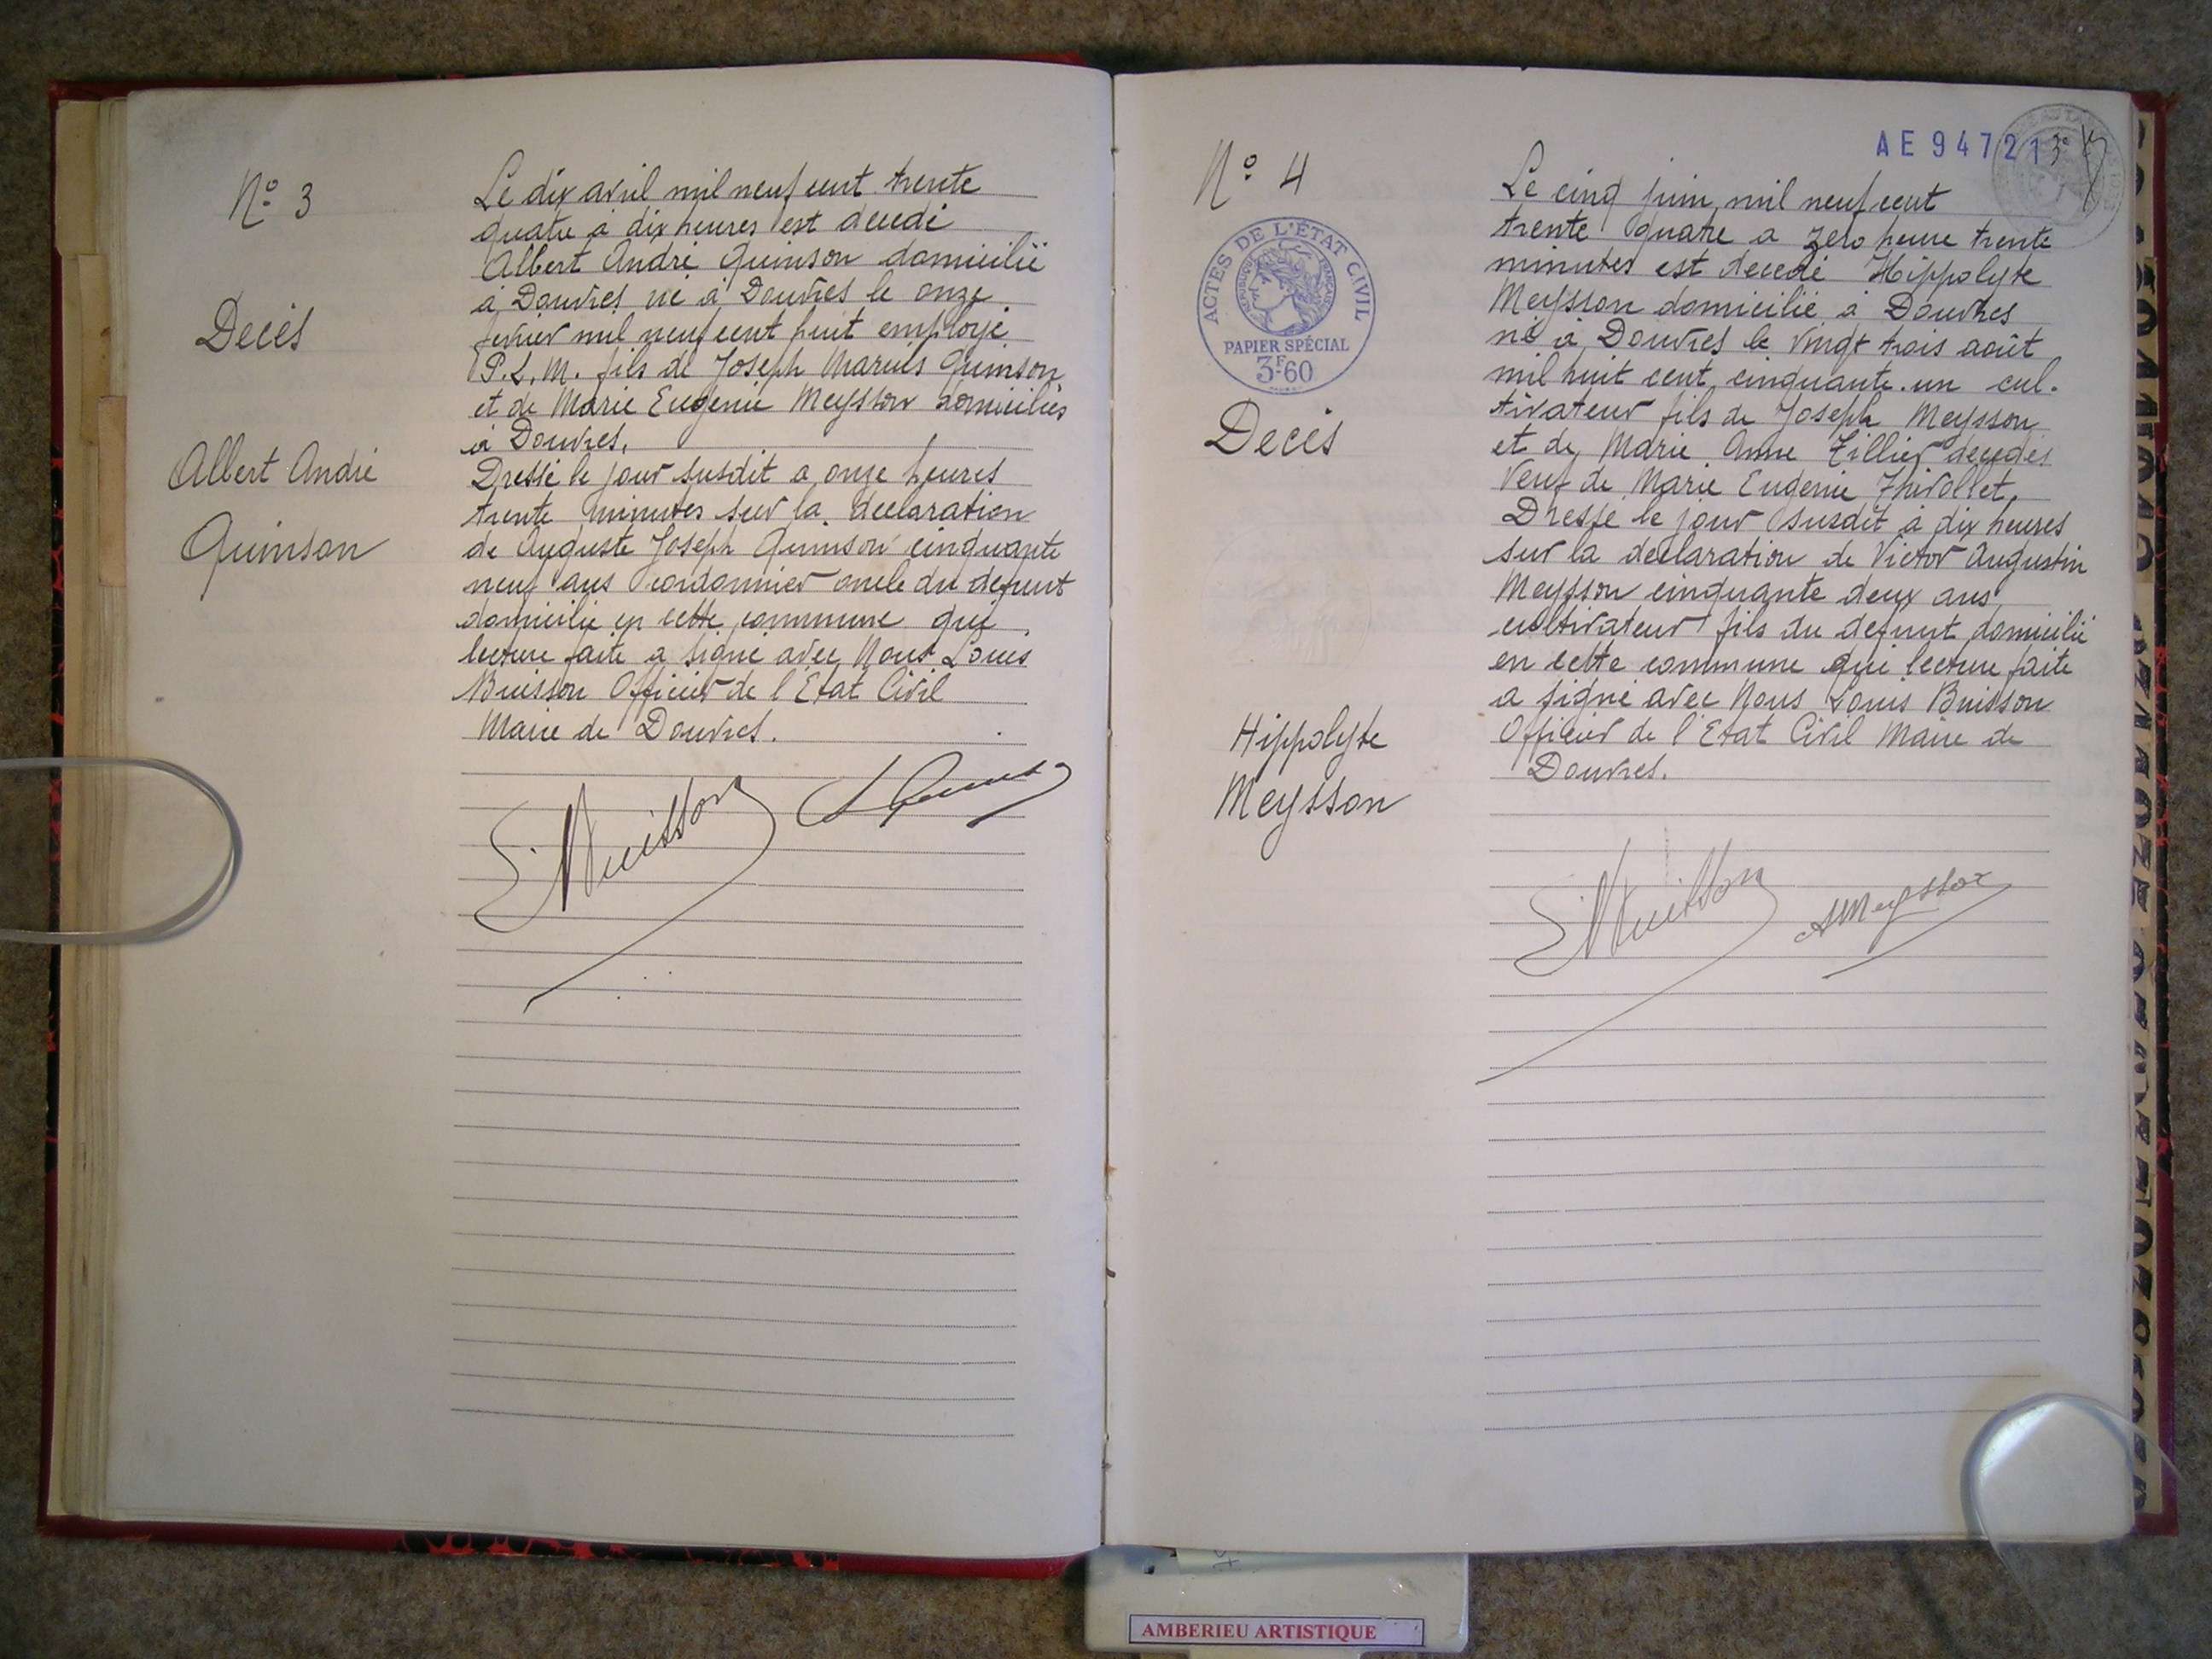 N° 3
Decès
Albert André
Quinson
Le dix avril mil neuf cent trente
quatre à dix heures est decedé
Albert André Quinson domicilié
à Douvres né à Douvres le onze
fevrier mil neuf cent huit employé
P.L.M. fils de Joseph Marius Quinson
et de Marie Eugenie Meysson domiciliés
à Douvres.
Dressé le jour susdit a onze heures
trente minutes sur la declaration
de Auguste Joseph Quinson cinquante
neuf ans cordonnier oncle du defunt
domicilié en cette commune qui
lecture faite a signé avec Nous Louis
Buisson Officier de l'Etat Civil
Maire de Douvres.
L. Buisson
N° 4
ACTES DE L'ÉTAT CIVIL
RÉPUBLIQUE FRANÇAISE
PAPIER SPÉCIAL
3F60
Decès
Hippolyte
Meysson
AE 947213
Le cinq juin mil neuf cent
trente quatre a zero heure trente
minutes est decedé Hippolyte
Meysson domicilié à Douvres
né à Douvres le vingt trois août
mil huit cent cinquante.un cul-
tivateur fils de Joseph Meysson
et de Marie Anne Tillier decedés
Veuf de Marie Eugenie Thivollet.
Dressé le jour susdit à dix heures
sur la declaration de Victor Augustin
Meysson cinquante deux ans
cultivateur fils du defunt domicilié
en cette commune qui lecture faite
a signé avec Nous Louis Buisson
Officier de l'Etat Civil Maire de
Douvres.
L. Buisson
AMeysson
AMBERIEU ARTISTIQUE